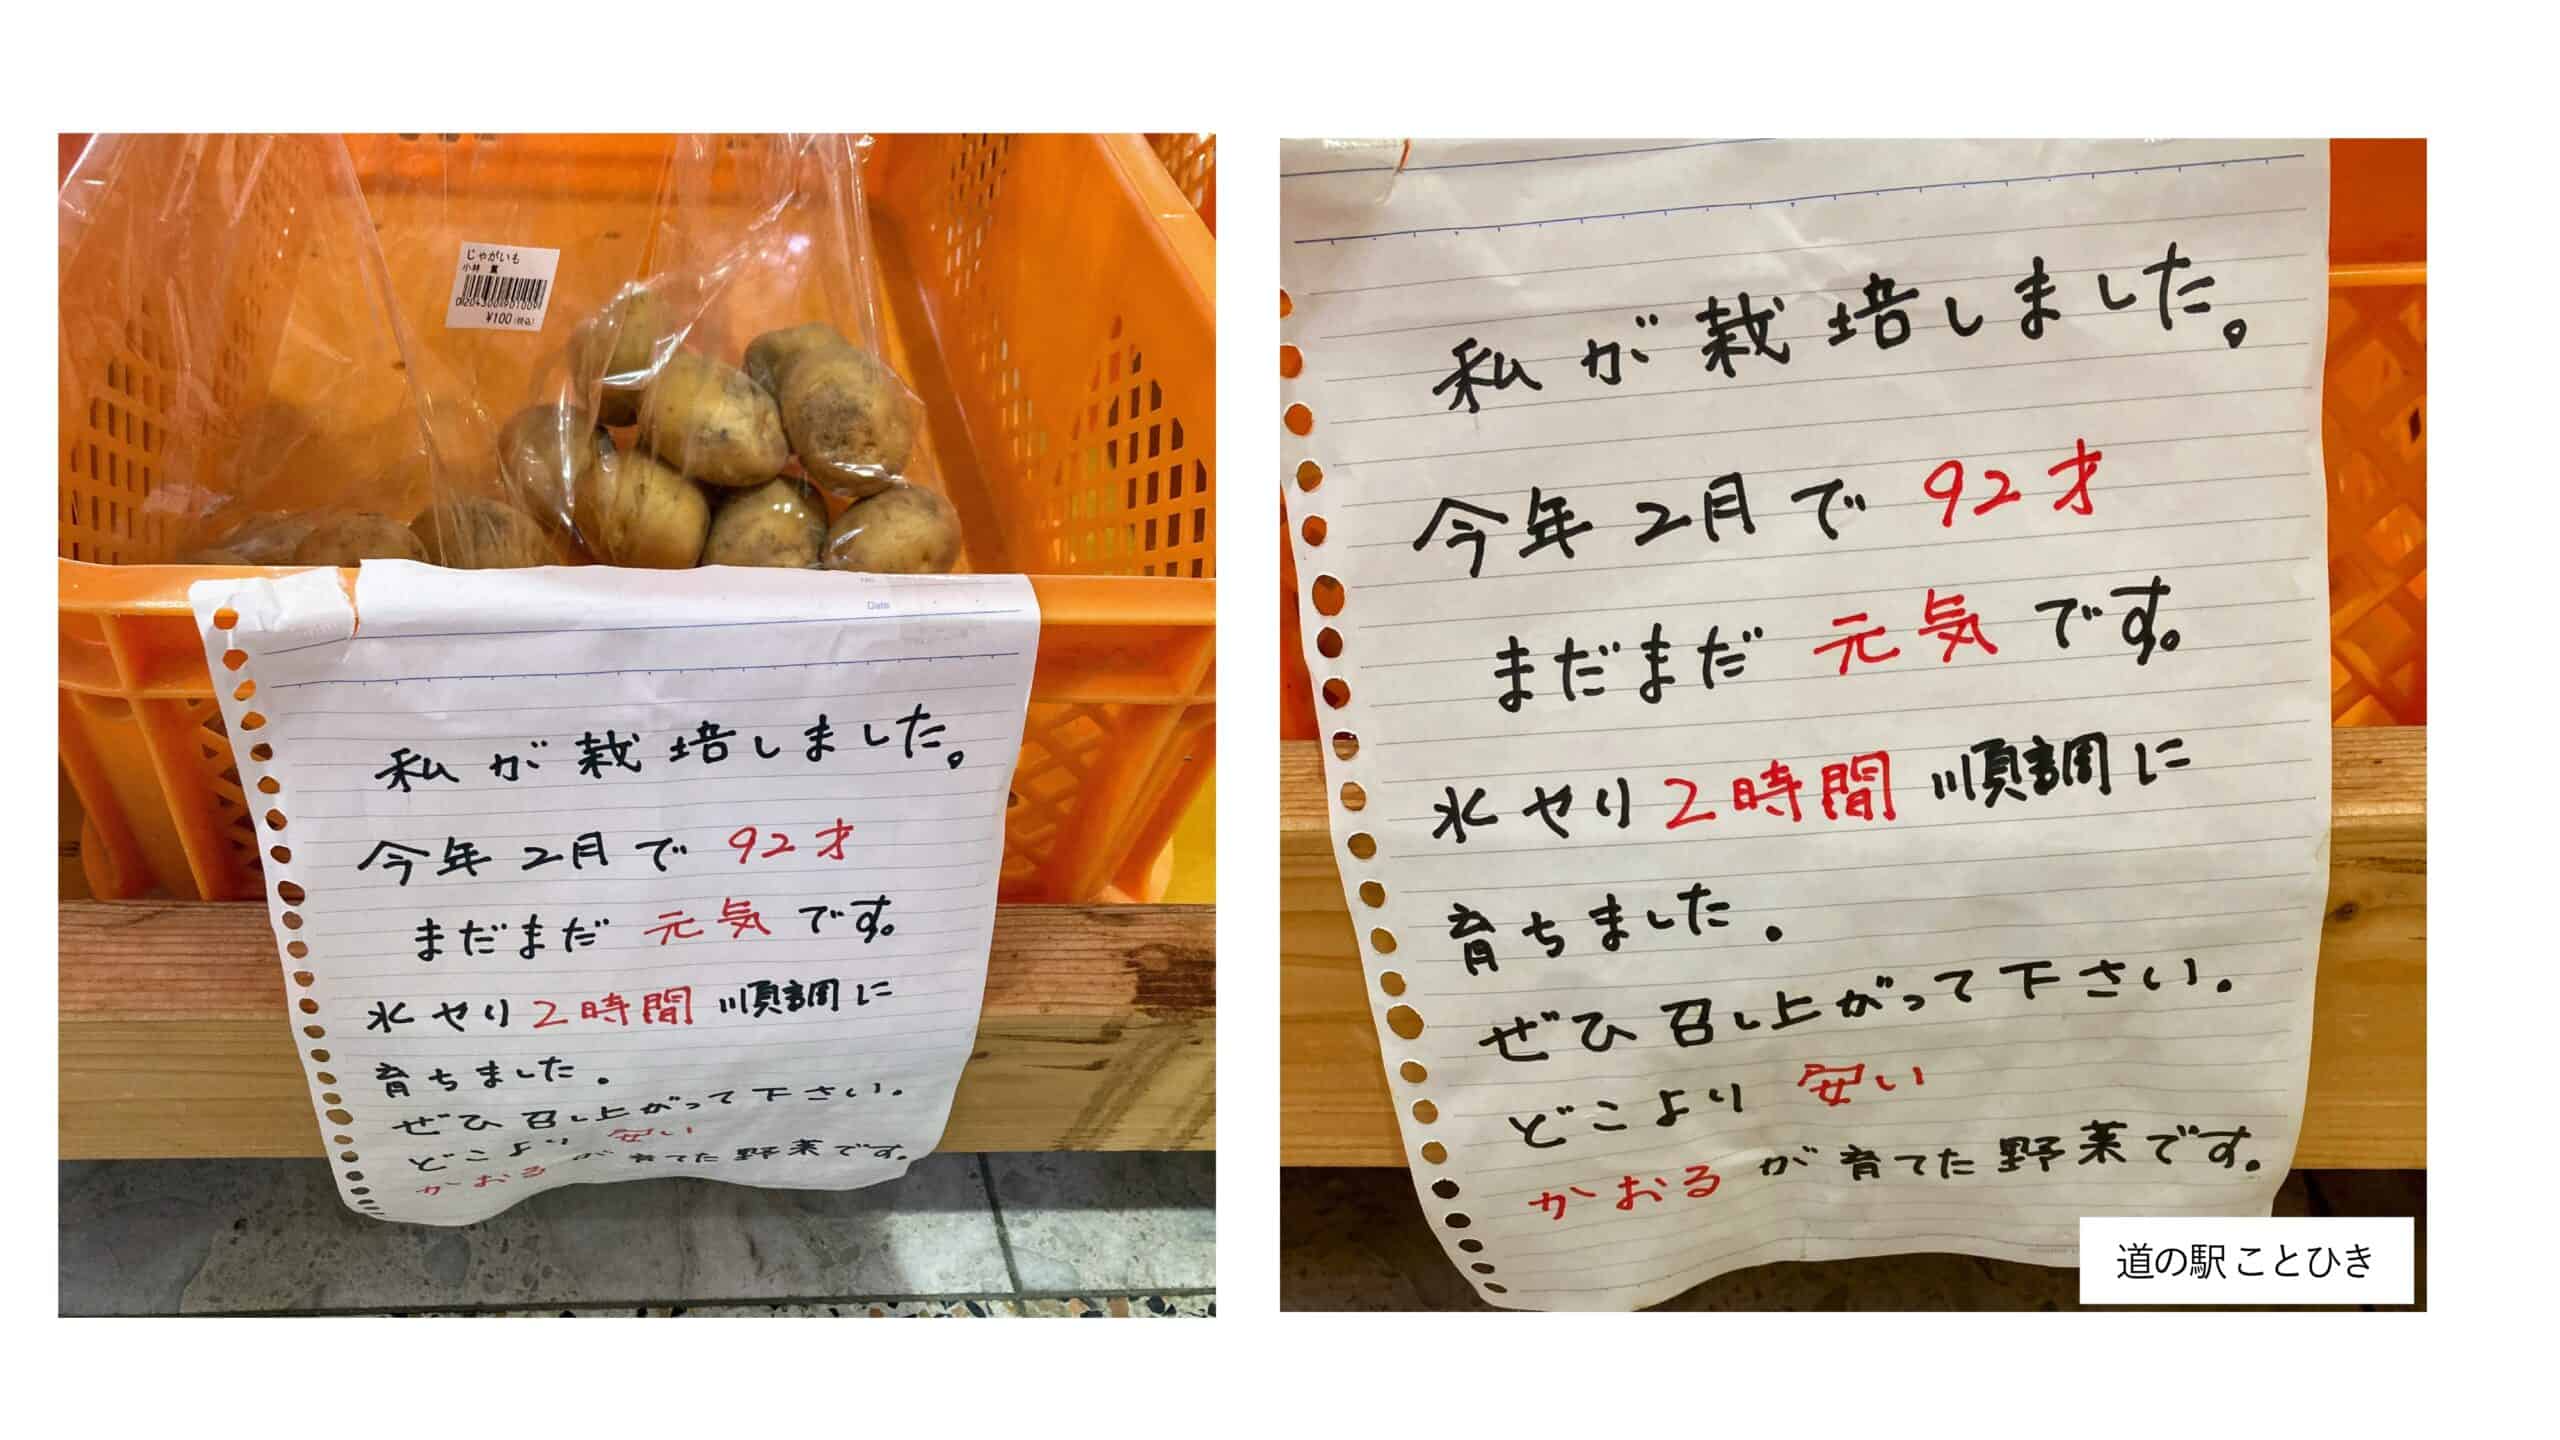 じゃがいも
小林 薫
¥100(税込)
Date
私が栽培しました。
今年2月で92才
まだまだ元気です。
水やり2時間順調に
育ちました.
ぜひ召し上がって下さい.
どこより安い
かおるが育てた野菜です。
私が栽培しました。
今年2月で92才
まだまだ元気です。
水やり2時間順調に
育ちました.
ぜひ召し上がって下さい.
どこより安い
かおるが育てた野菜です。
道の駅 ことひき